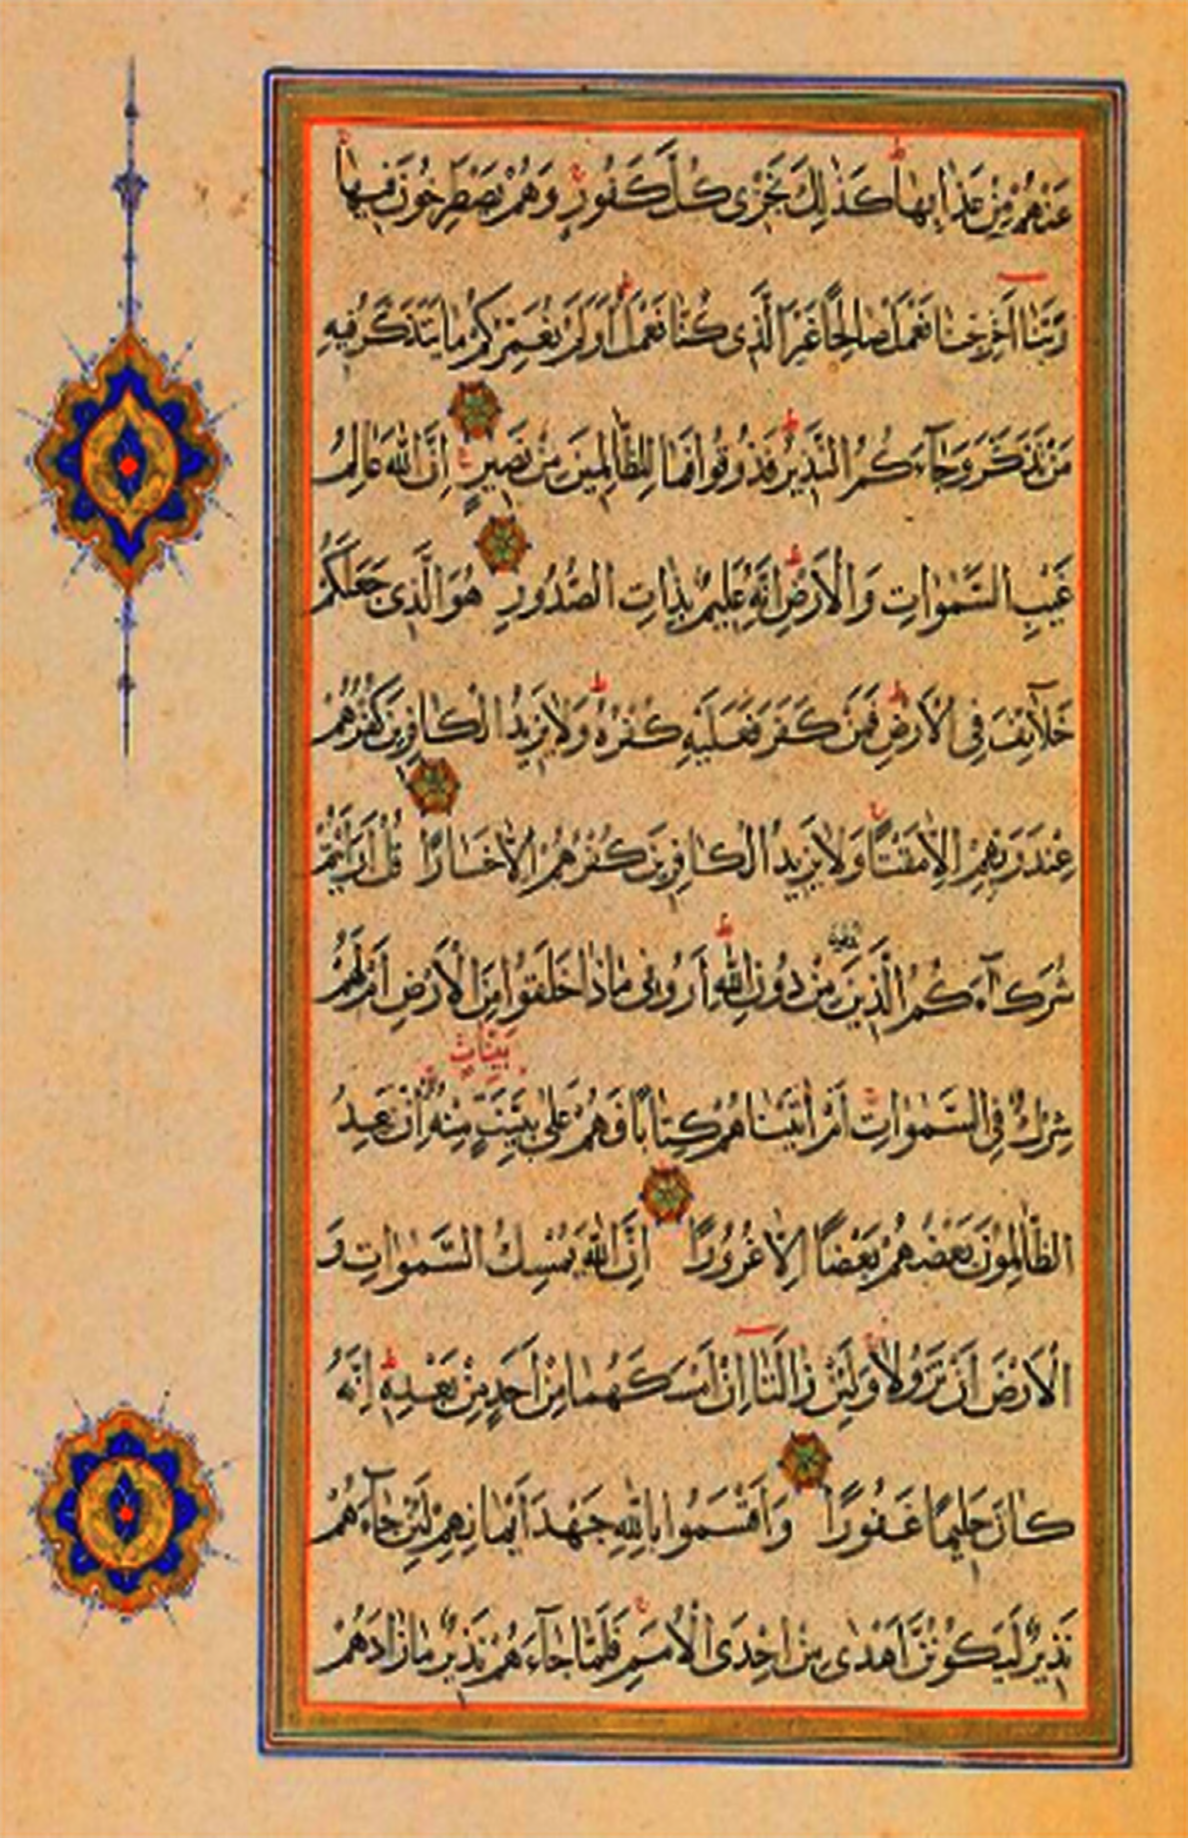 عَنْهُمْ مِنْ عَذَابِهَا كَذٰلِكَ نَجْزِى كُلَّ كَفُورٍ وَهُمْ يَصْطَرِخُونَ فِيهَا
رَبَّنَا اَخْرِجْنَا نَعْمَلْ صَالِحًا غَيْرَ الَّذِى كُنَّا نَعْمَلُ اَوَلَمْ نُعَمِّرْكُمْ مَا يَتَذَكَّرُ فِيهِ
مَنْ تَذَكَّرَ وَجَآءَكُمُ النَّذِيرُ فَذُوقُوا فَمَا لِلظَّالِمِينَ مِنْ نَصِيرٍ اِنَّ اللّٰهَ عَالِمُ
غَيْبِ السَّمٰوَاتِ وَالْاَرْضِ اِنَّهُ عَلِيمٌ بِذَاتِ الصُّدُورِ هُوَ الَّذِى جَعَلَكُمْ
خَلَآئِفَ فِى الْاَرْضِ فَمَنْ كَفَرَ فَعَلَيْهِ كُفْرُهُ وَلَا يَزِيدُ الْكَافِرِينَ كُفْرُهُمْ
عِنْدَ رَبِّهِمْ اِلَّا مَقْتًا وَلَا يَزِيدُ الْكَافِرِينَ كُفْرُهُمْ اِلَّا خَسَارًا قُلْ اَرَاَيْتُمْ
شُرَكَآءَكُمُ الَّذِينَ مِنْ دُونِ اللّٰهِ اَرُونِى مَاذَا خَلَقُوا مِنَ الْاَرْضِ اَمْ لَهُمْ
بَيِّنَاتٍ
شِرْكٌ فِى السَّمٰوَاتِ اَمْ اٰتَيْنَاهُمْ كِتَابًا فَهُمْ عَلٰى بَيِّنَتٍ مِنْهُ اِنْ يَعِدُ
الظَّالِمُونَ بَعْضُهُمْ بَعْضًا اِلَّا غُرُورًا اِنَّ اللّٰهَ يُمْسِكُ السَّمٰوَاتِ وَ
الْاَرْضَ اَنْ تَزُولَا وَلَئِنْ زَالَتَا اِنْ اَمْسَكَهُمَا مِنْ اَحَدٍ مِنْ بَعْدِهِ اِنَّهُ
كَانَ حَلِيمًا غَفُورًا وَاَقْسَمُوا بِاللّٰهِ جَهْدَ اَيْمَانِهِمْ لَئِنْ جَآءَهُمْ
نَذِيرٌ لَيَكُونُنَّ اَهْدٰى مِنْ اِحْدَى الْاُمَمِ فَلَمَّا جَآءَهُمْ نَذِيرٌ مَا زَادَهُمْ